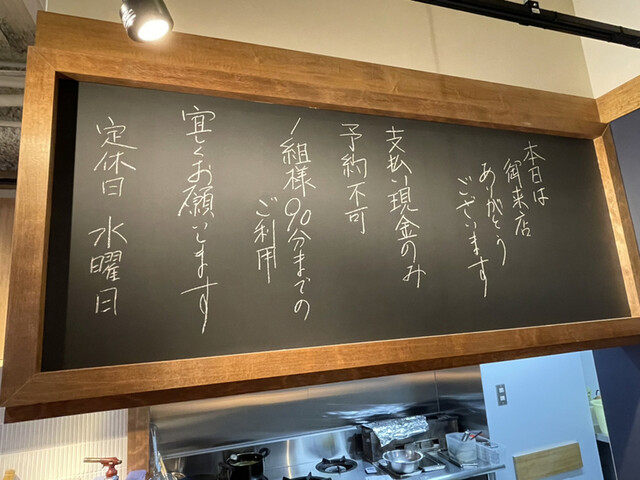 本日は
御来店
ありがとう
ございます
支払い現金のみ
予約不可
1組様90分までの
ご利用
宜しくお願いします
定休日 水曜日